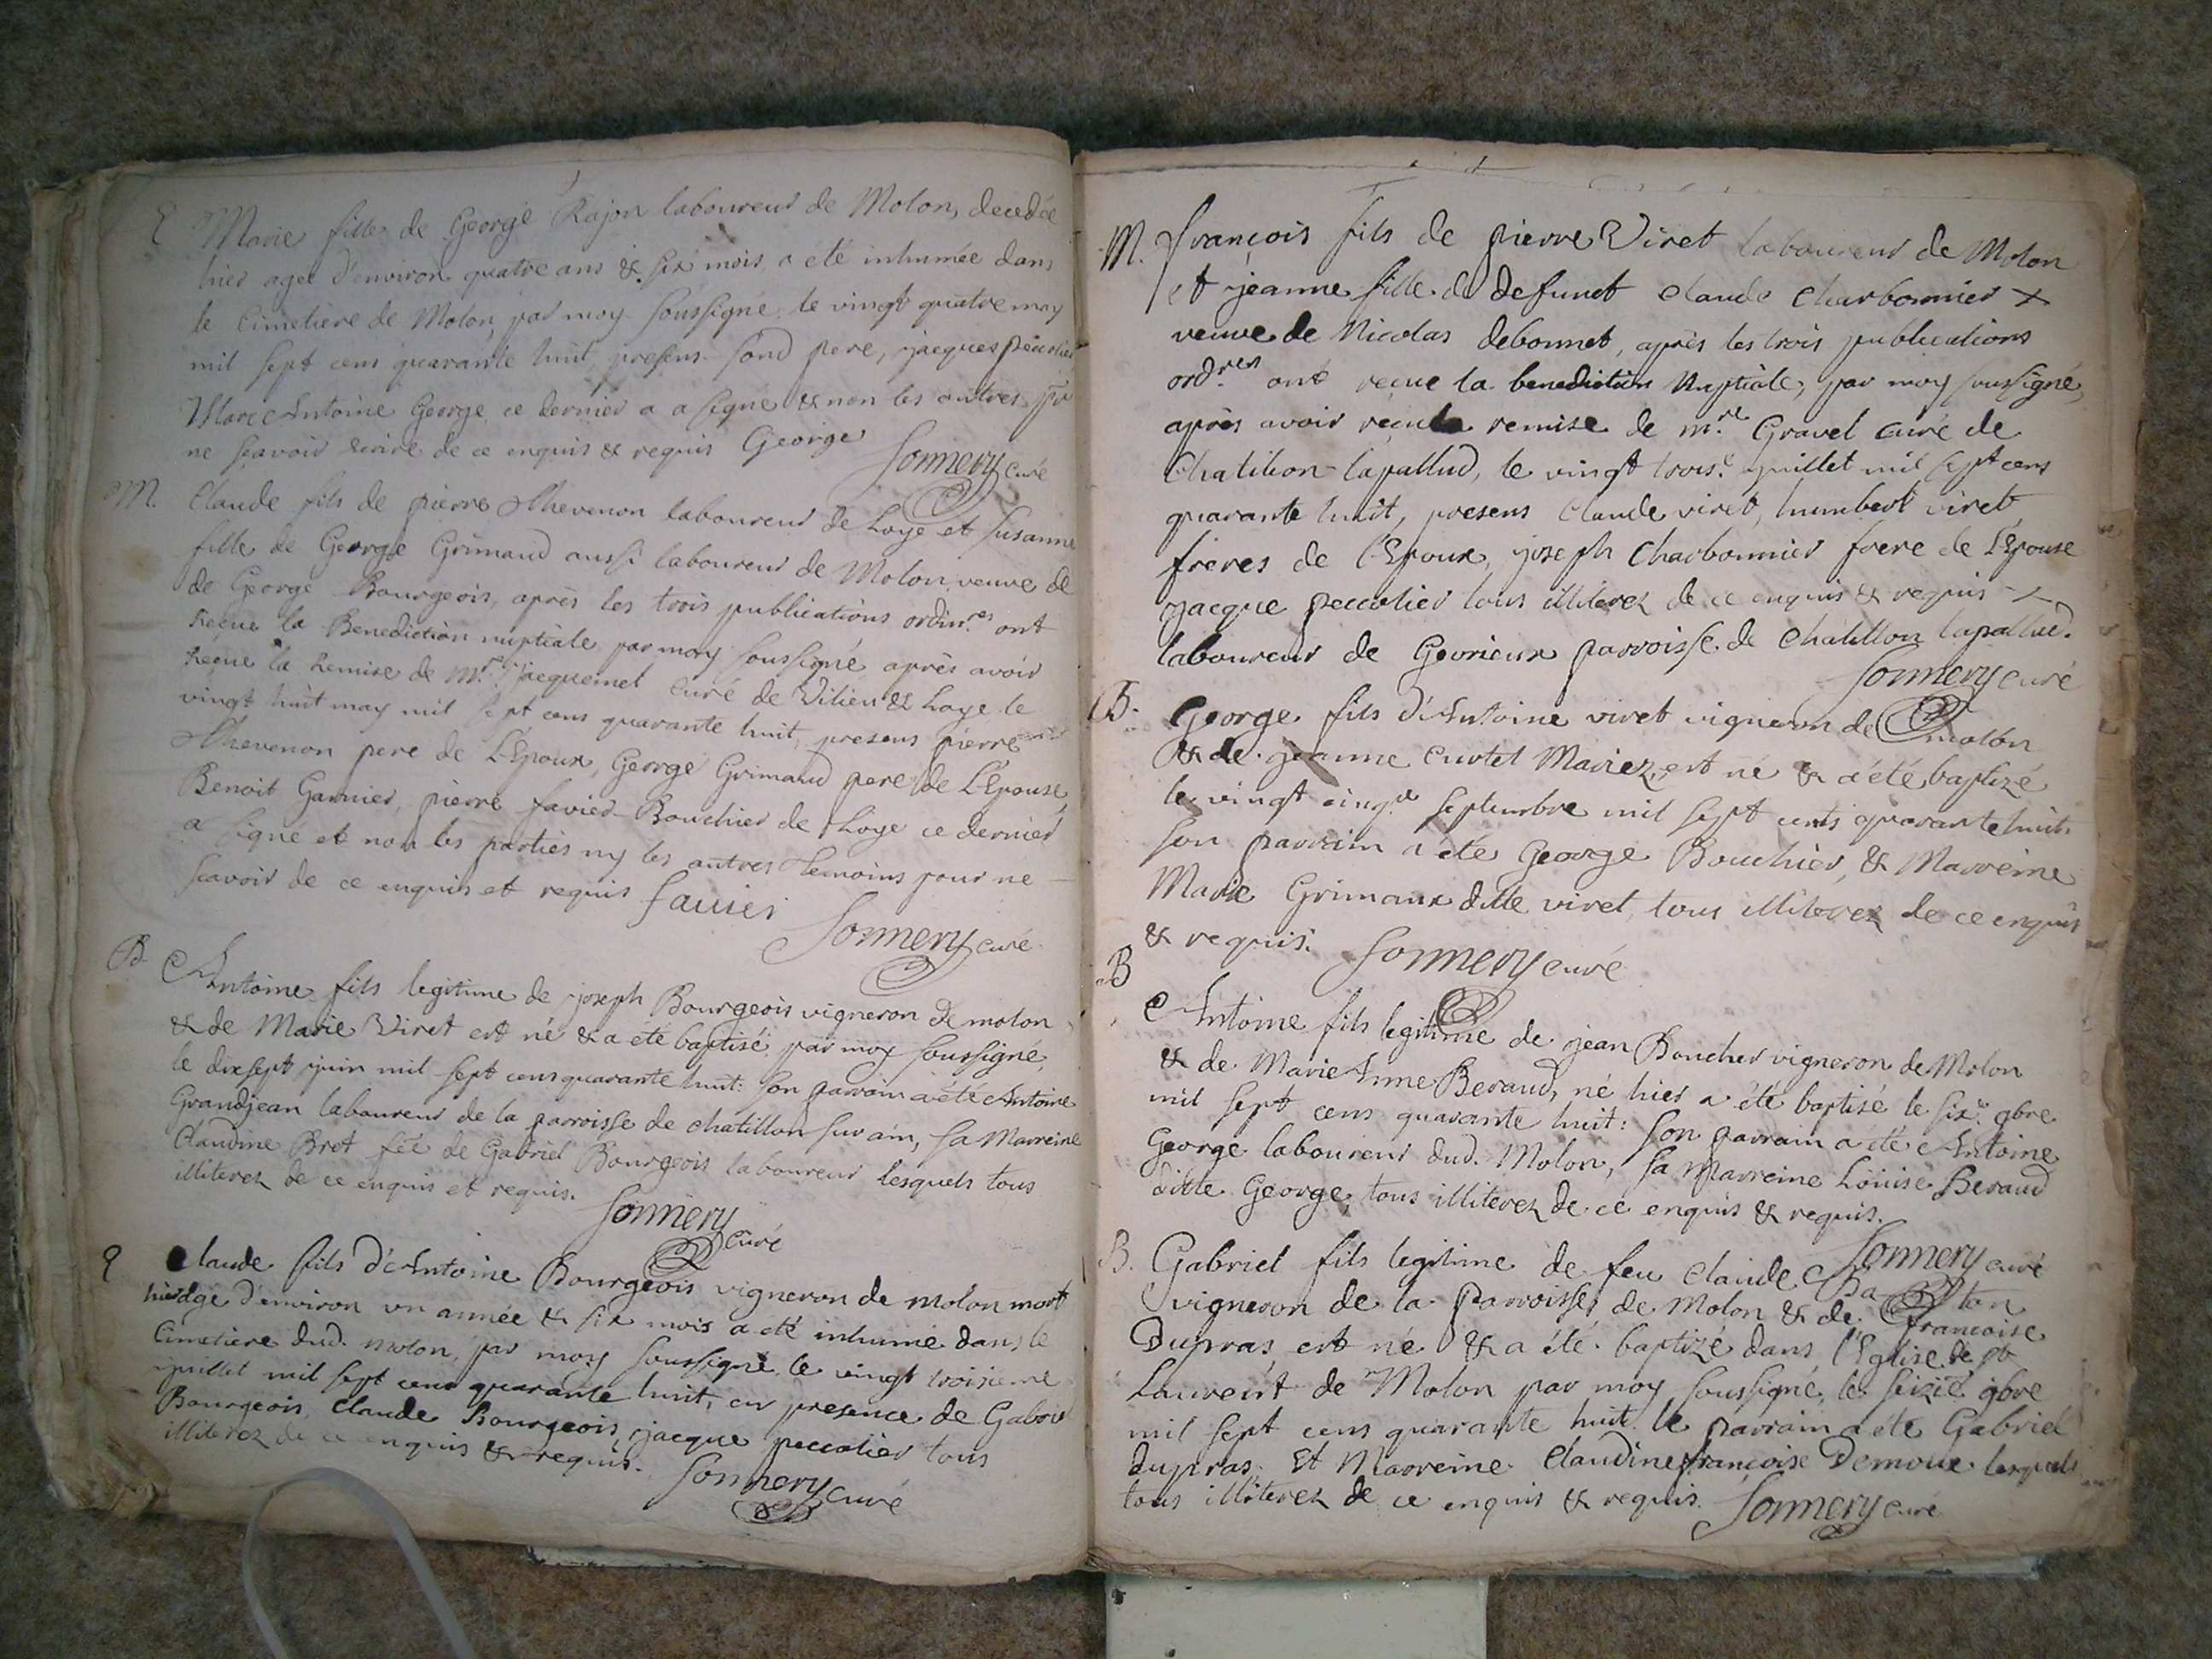 E Marie fille de George Rajon laboureur de Molon, decedée
hier agée d'environ quatre ans & six mois a eté inhumée dans
le Cimetiere de Molon, par moy soussigné le vingt quatre may
mil sept cens quarante huit, presens sond pere, jacques peccolier
Marc Antoine George ce dernier a a signé & non les autres pr
ne sçavoir écrire de ce enquis & requis George
Sonnery curé
M. Claude fils de pierre Thevenon laboureur de Loye et Susanne
fille de George Grimaud aussi laboureur de Molon veuve de
de George Bourgeois, après les trois publications ordinres ont
reçue la Benediction nuptiale par moy soussigné après avoir
reçue la remise de mre jacquemet curé de Vilieu & Loye le
vingt huit may mil sept cens quarante huit, presens pierre
Thevenon pere de L'Epoux, George Grimaud pere de L'Epouse,
Benoit Garnier, pierre favier Bouchier de Loye ce dernier
a signé et non les parties ny les autres temoins pour ne
sçavoir de ce enquis et requis favier
Sonnery curé
B. Antoine fils legitime de joseph Bourgeois vigneron de molon
& de Marie Viret est né & a eté baptisé par moy soussigné,
le dixsept juin mil sept cens quarante huit: son parrain a été Antoine
Grandjean laboureur de la parroisse de chatillon sur ain, sa Marreine
Claudine Bret fee de Gabriel Bourgeois laboureur lesquels tous
illiterez de ce enquis et requis.
Sonnery curé
E Claude fils d'Antoine Bourgeois vigneron de molon mort
hier agé d'environ un année & six mois a eté inhumé dans le
Cimetiere dud. molon, par moy soussigné le vingt troisieme
juillet mil sept cens quarante huit, en presence de Gabriel
Bourgeois, Claude Bourgeois, jacque peccolier tous
illiterez de ce enquis & requis.
Sonnery curé
M. françois fils de pierre Viret laboureur de Molon
et jeanne fille de defunct claude charbonnier x
veuve de Nicolas debonnet, après les trois publications
ordres ont reçue la benediction Nuptiale, par moy soussigné,
après avoir reçu la remise de mre Gravel curé de
Chatillon lapallud, le vingt trois.e juillet mil sept cens
quarante huit, presens Claude viret, humbert viret
freres de l'Epoux, joseph Charbonnier frere de L'Epouse
jacque peccolier tous illiterez de ce enquis & requis x
laboureur de Gevrieux parroisse de chatillon lapallud.
Sonnery curé
B. George fils d'Antoine viret vigneron de molon
& de jeanne curtet Mariez, est né & a été baptizé
le vingt cinqe septembre mil sept cents quarante huit.
son parrain a été George Bouchier, & Marreine
Marie Grimaux ditte viret, tous illiterez de ce enquis
& requis. Sonnery curé
B Antoine fils legitime de jean Boucher vigneron de Molon
& de Marie Anne Beraud, né hier a été baptisé le sixe 9bre
mil sept cens quarante huit: son parrain a été Antoine
George laboureur dud. Molon, sa Marreine Loüise Beraud
ditte George, tous illiterez de ce enquis & requis.
Sonnery curé
B. Gabriel fils legitime de feu claude ton
vigneron de la Parroisse de Molon & de françoise
Dupras est né & a été baptizé dans l'Eglise de st
Laurent de Molon par moy soussigné, le seizie 9bre
mil sept cens quarante huit le parrain a été Gabriel
dupras. Et Marreine Claudine françoise Demoux lesquels
tous illiterez de ce enquis & requis. Sonnery curé